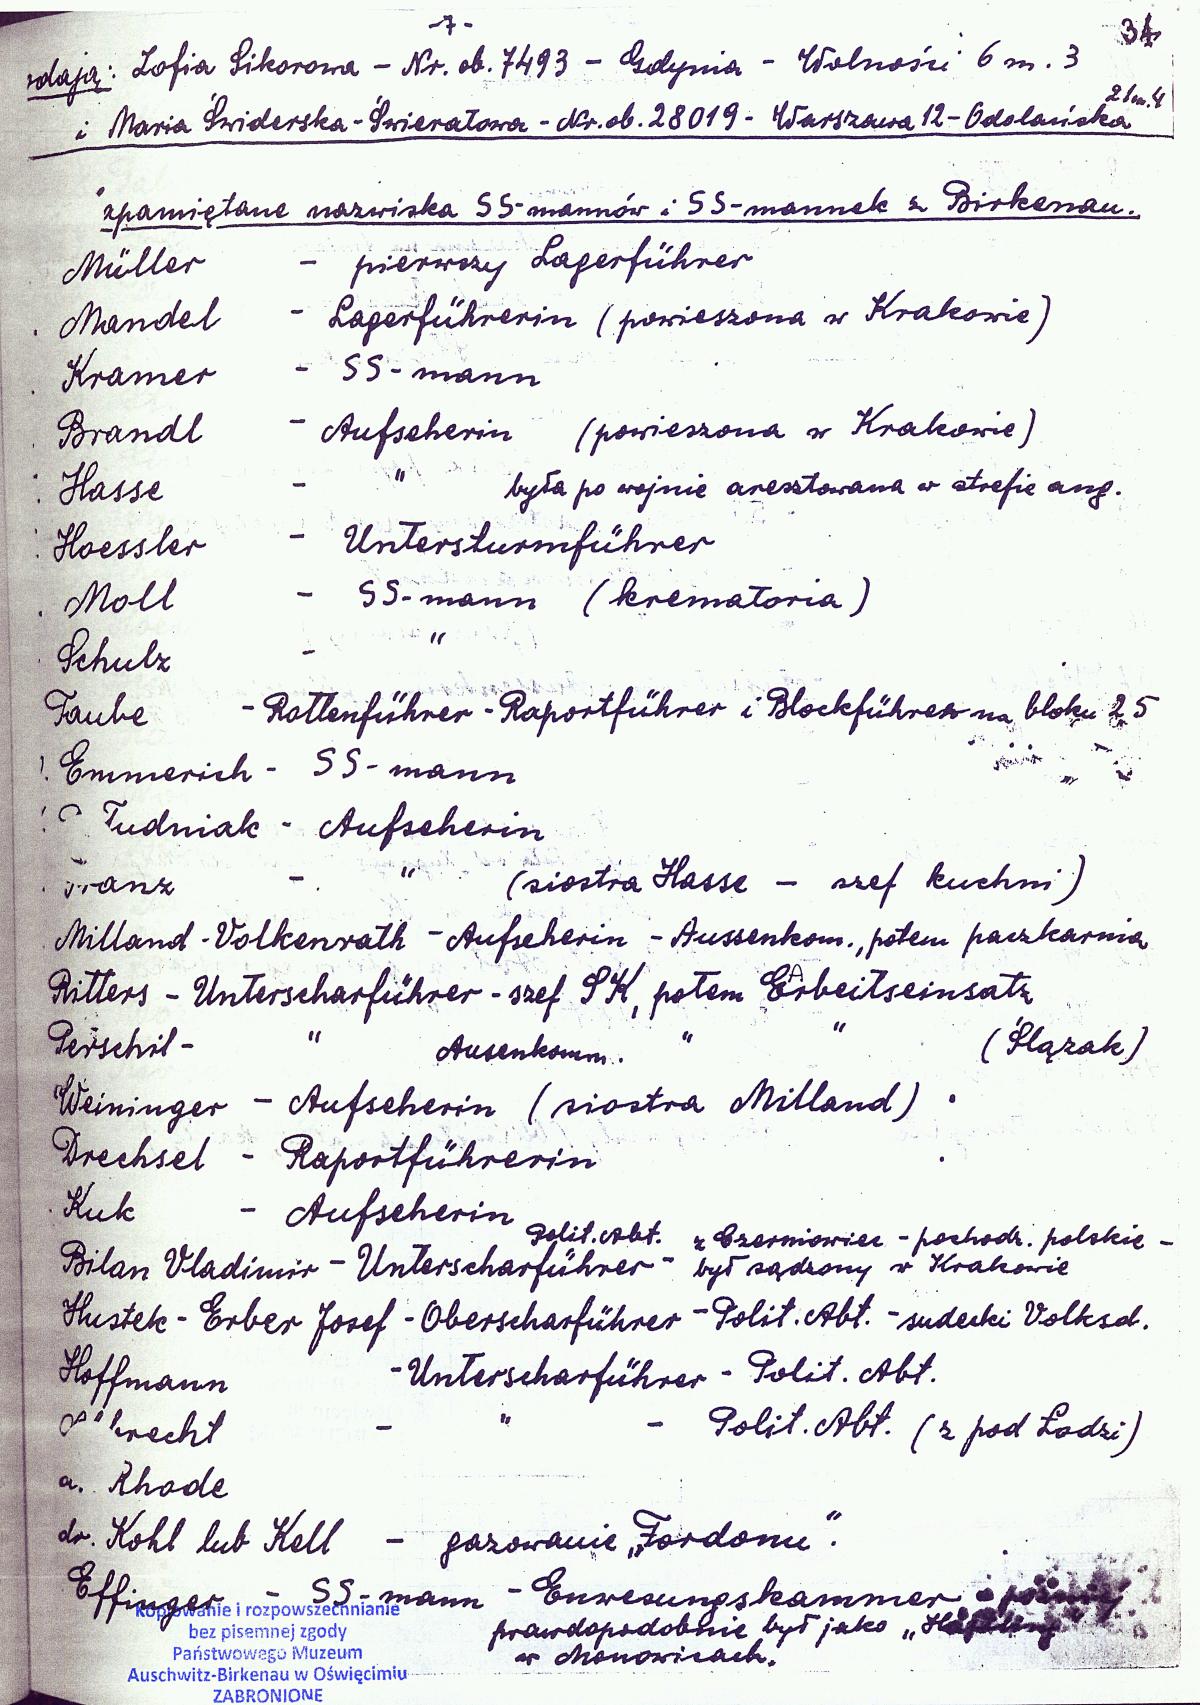 -7-
34
zdają: Zofia Sikorowa - Nr. ob. 7493 - Gdynia - Wolności 6 m. 3
i Maria Świderska-Świeratowa - Nr. ob. 28019 - Warszawa 12 - Odolańska 21 m. 4
zpamiętane nazwiska SS-mannów i SS-mannek z Birkenau.
Müller - pierwszy Lagerführer
Mandel - Lagerführerin (powieszona w Krakowie)
Kramer - SS-mann
Brandl - Aufseherin (powieszona w Krakowie)
Hasse - " była po wojnie aresztowana w strefie ang.
Hoessler - Untersturmführer
Moll - SS-mann (krematoria)
Schulz - "
Taube - Rottenführer - Raportführer i Blockführer na bloku 25
Emmerich - SS-mann
Tudniak - Aufseherin
Franz - " (siostra Hasse - szef kuchni)
Milland-Volkenrath - Aufseherin - Aussenkom., potem paczkarnia
Ritters - Unterscharführer - szef SK, potem Arbeitseinsatz
Perschil - " Ausenkomm. " " (Ślązak)
Weininger - Aufseherin (siostra Milland)
Drechsel - Raportführerin
Kuk - Aufseherin
Bilan Vladimir - Unterscharführer - Polit. Abt. z Czerniowiec - pochodz. polskie - był sądzony w Krakowie
Hustek-Erber Josef - Oberscharführer - Polit. Abt. - sudecki Volksd.
Hoffmann - Unterscharführer - Polit. Abt.
- " - Polit. Abt. (z pod Łodzi)
Rhode
dr. Kohl lub Kell - gazowanie „Fordonu".
Effinger - SS-mann - Enwesungskammer i później
prawdopodobnie był jako „Häftling"
w Monowicach.
Kopiowanie i rozpowszechnianie
bez pisemnej zgody
Państwowego Muzeum
Auschwitz-Birkenau w Oświęcimiu
ZABRONIONE